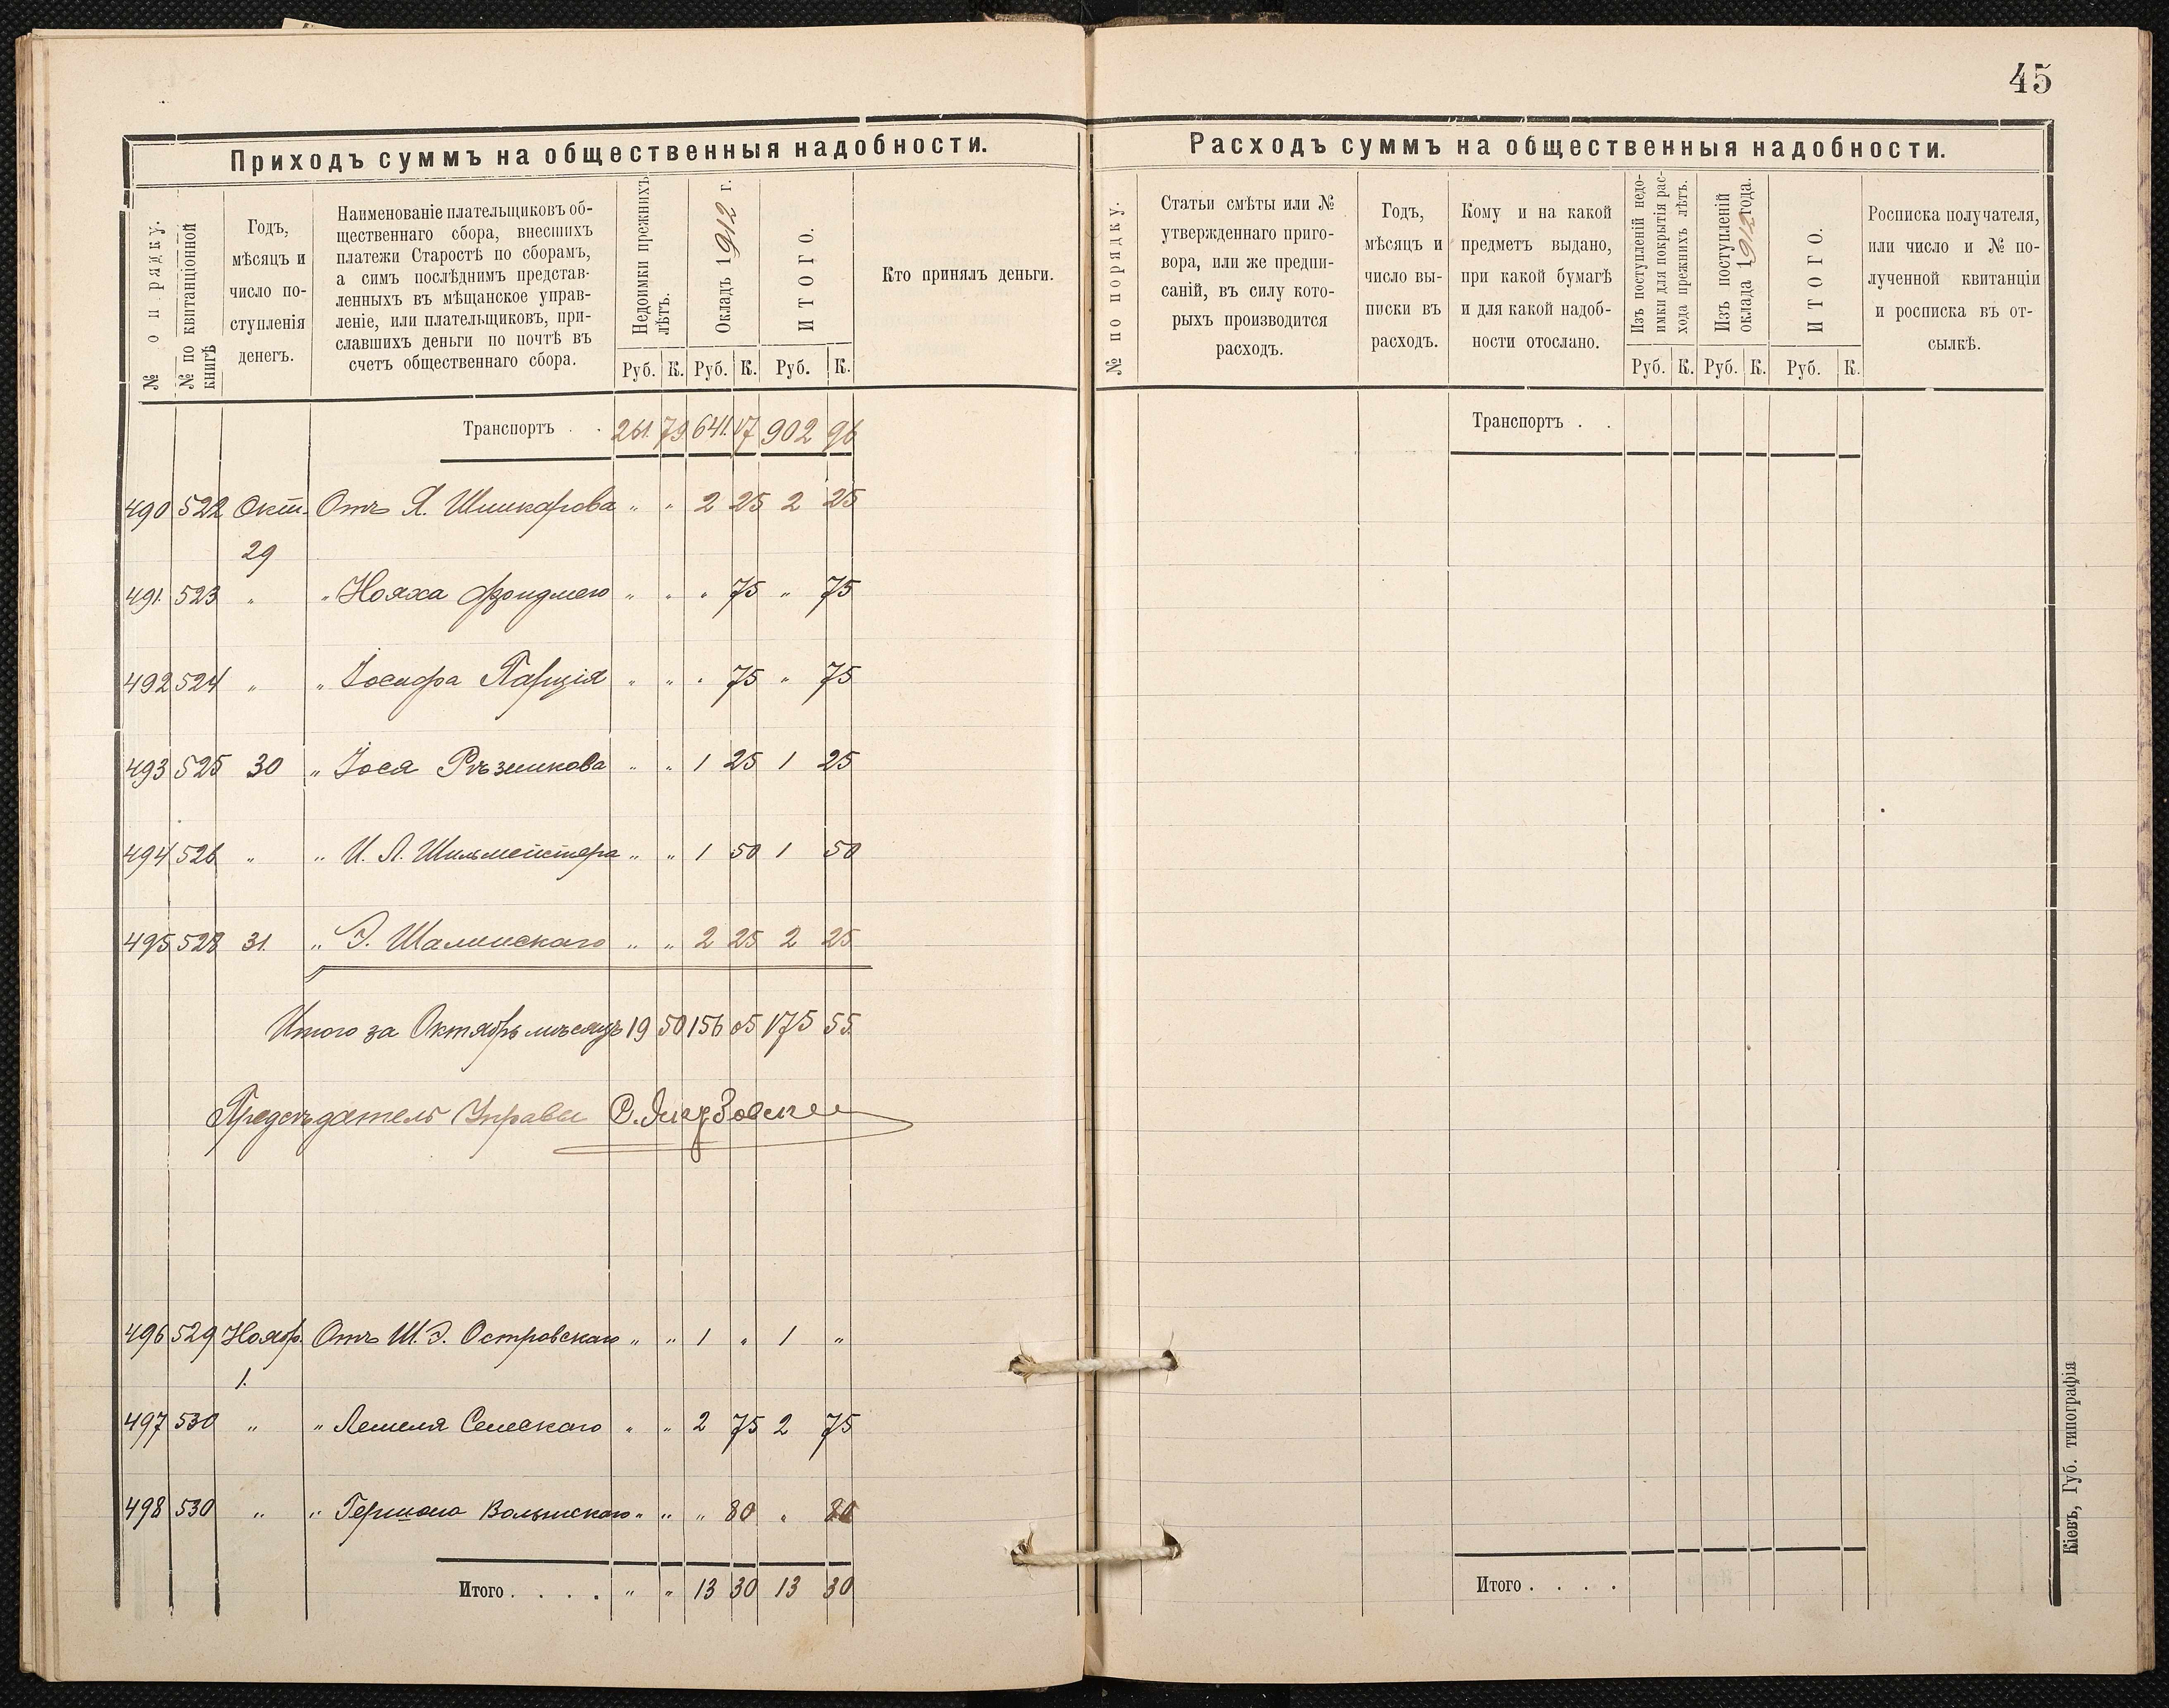 45
Приходъ суммъ на общественныя надобности.
№ по рядку.
№ по квитанціонной книгѣ
Годъ, мѣсяцъ и число поступленія денегъ.
Наименованіе плательщиковъ об-
щественнаго сбора, внесшихъ
платежи Старостѣ по сборамъ,
а симъ послѣднимъ представ-
ленныхъ въ мѣщанское управ-
леніе, или плательщиковъ, при-
славшихъ деньги по почтѣ въ
счетъ общественнаго сбора.
Недоимки прежнихъ лѣтъ.
Окладъ 1912 г.
ИТОГО.
Кто принялъ деньги.
Руб. К. Руб. К. Руб. К.
Транспортъ . . 261. 79 641. 17 902 96
490 522 Окт. Отъ Я. Шишкарова " " 2 25 2 25
29
491. 523 " " Нояха " " " 75 " 75
492 524 " " Іосифа Парція " " " 75 " 75
493 525 30 " Іося Рѣзникова " " 1 25 1 25
494 526 " " И. Л. Шильмейстера " " 1 50 1 50
495 528 31. " Э. Шалинскаго " " 2 25 2 25
Итого за Октябрь мѣсяцъ 19 50 156 05 175 55
Предсѣдатель Управы
496 529 Ноябр. Отъ Ш. Э. Островскаго " " 1 " 1 "
1.
497 530 " " Лемеля " " 2 75 2 75
498 530 " " Гершона Волынскаго " " " 80 " 80
Итого . . . . " " 13 30 13 30
Расходъ суммъ на общественныя надобности.
№ по порядку.
Статьи смѣты или №
утвержденнаго приго-
вора, или же предпи-
саній, въ силу кото-
рыхъ производится
расходъ.
Годъ,
мѣсяцъ и
число вы-
писки въ
расходъ.
Кому и на какой
предметъ выдано,
при какой бумагѣ
и для какой надоб-
ности отослано.
Изъ поступленій недо-
имки для покрытія рас-
хода прежнихъ лѣтъ.
Изъ поступленій
оклада 1912 года.
ИТОГО.
Росписка получателя,
или число и № по-
лученной квитанціи
и росписка въ от-
сылкѣ.
Руб. К. Руб. К. Руб. К.
Транспортъ . .
Итого . . . .
Кіевъ, Губ. типографія